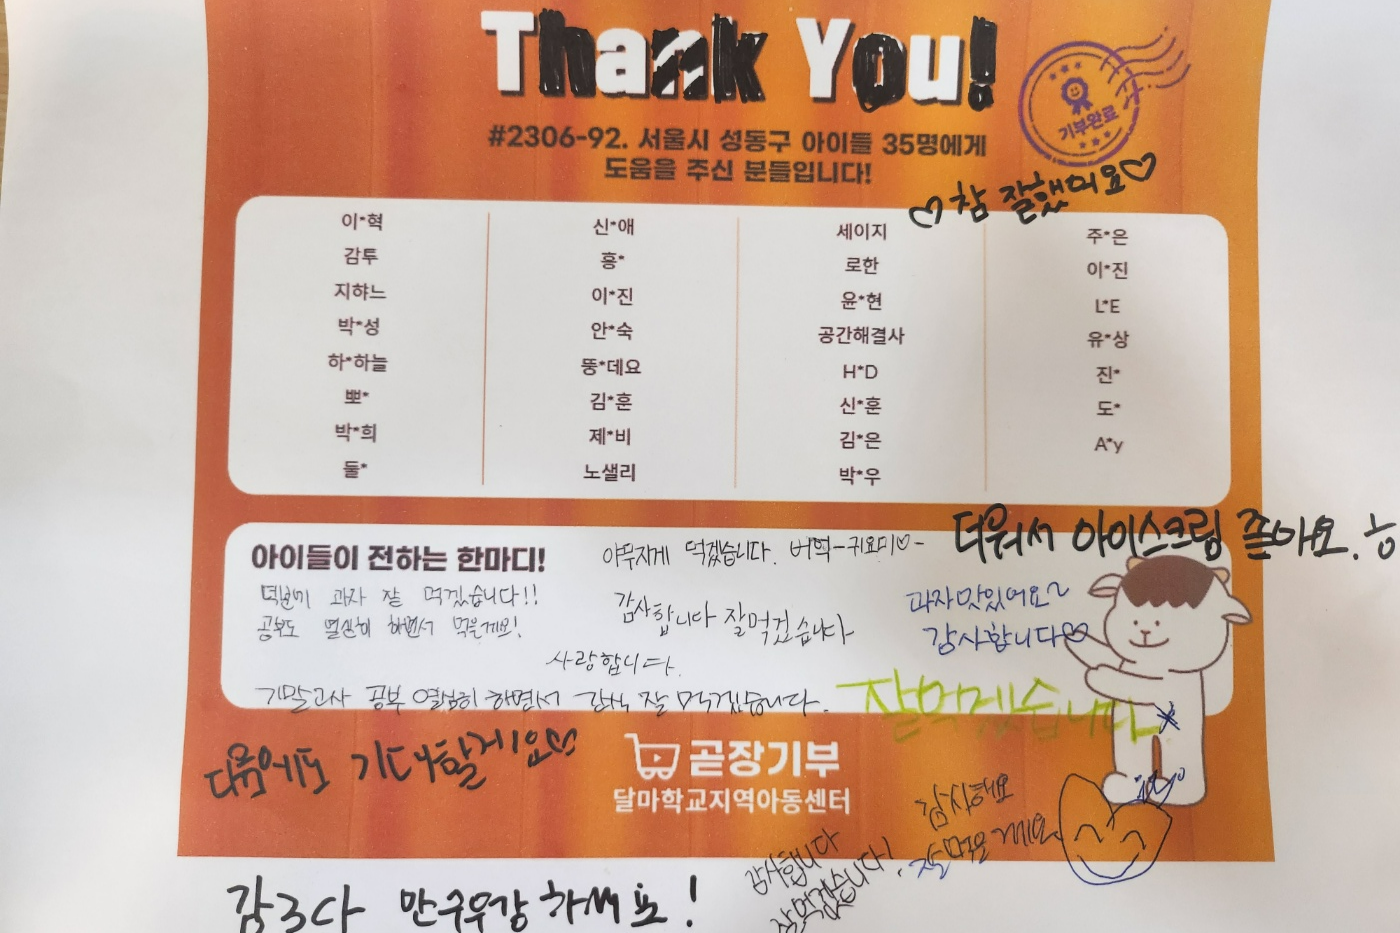 Thank You!
#2306-92. 서울시 성동구 아이들 35명에게
도움을 주신 분들입니다!
기부완료
♡참 잘했어요♡
이*혁
감투
지햐느
박*성
하*하늘
뽀*
박*희
둘*
신*애
홍*
이*진
안*숙
뚱*데요
김*훈
제*비
노샐리
세이지
로한
윤*현
공간해결사
H*D
신*훈
김*은
박*우
주*은
이*진
L*E
유*상
진*
도*
A*y
더워서 아이스크림 좋아요.
아이들이 전하는 한마디!
야무지게 먹겠습니다.
덕분에 과자 잘 먹겠습니다!!
공부도 열심히 하면서 먹을게요!
감사합니다 잘먹겠습니다
과자맛있어요~
감사합니다♡
사랑합니다.
기말고사 공부 열심히 하면서 간식 잘 먹겠습니다.
잘먹겠습니다
다음에도 기대할게요♡
곧장기부
달마학교지역아동센터
감사해요
잘 먹을게요
감사합니다
잘먹겠습니다!